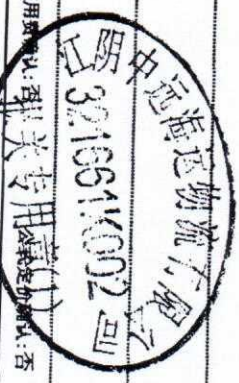 江阴中远海运物流有限公司
321661K002
报关专用章(1)
认:
认:否